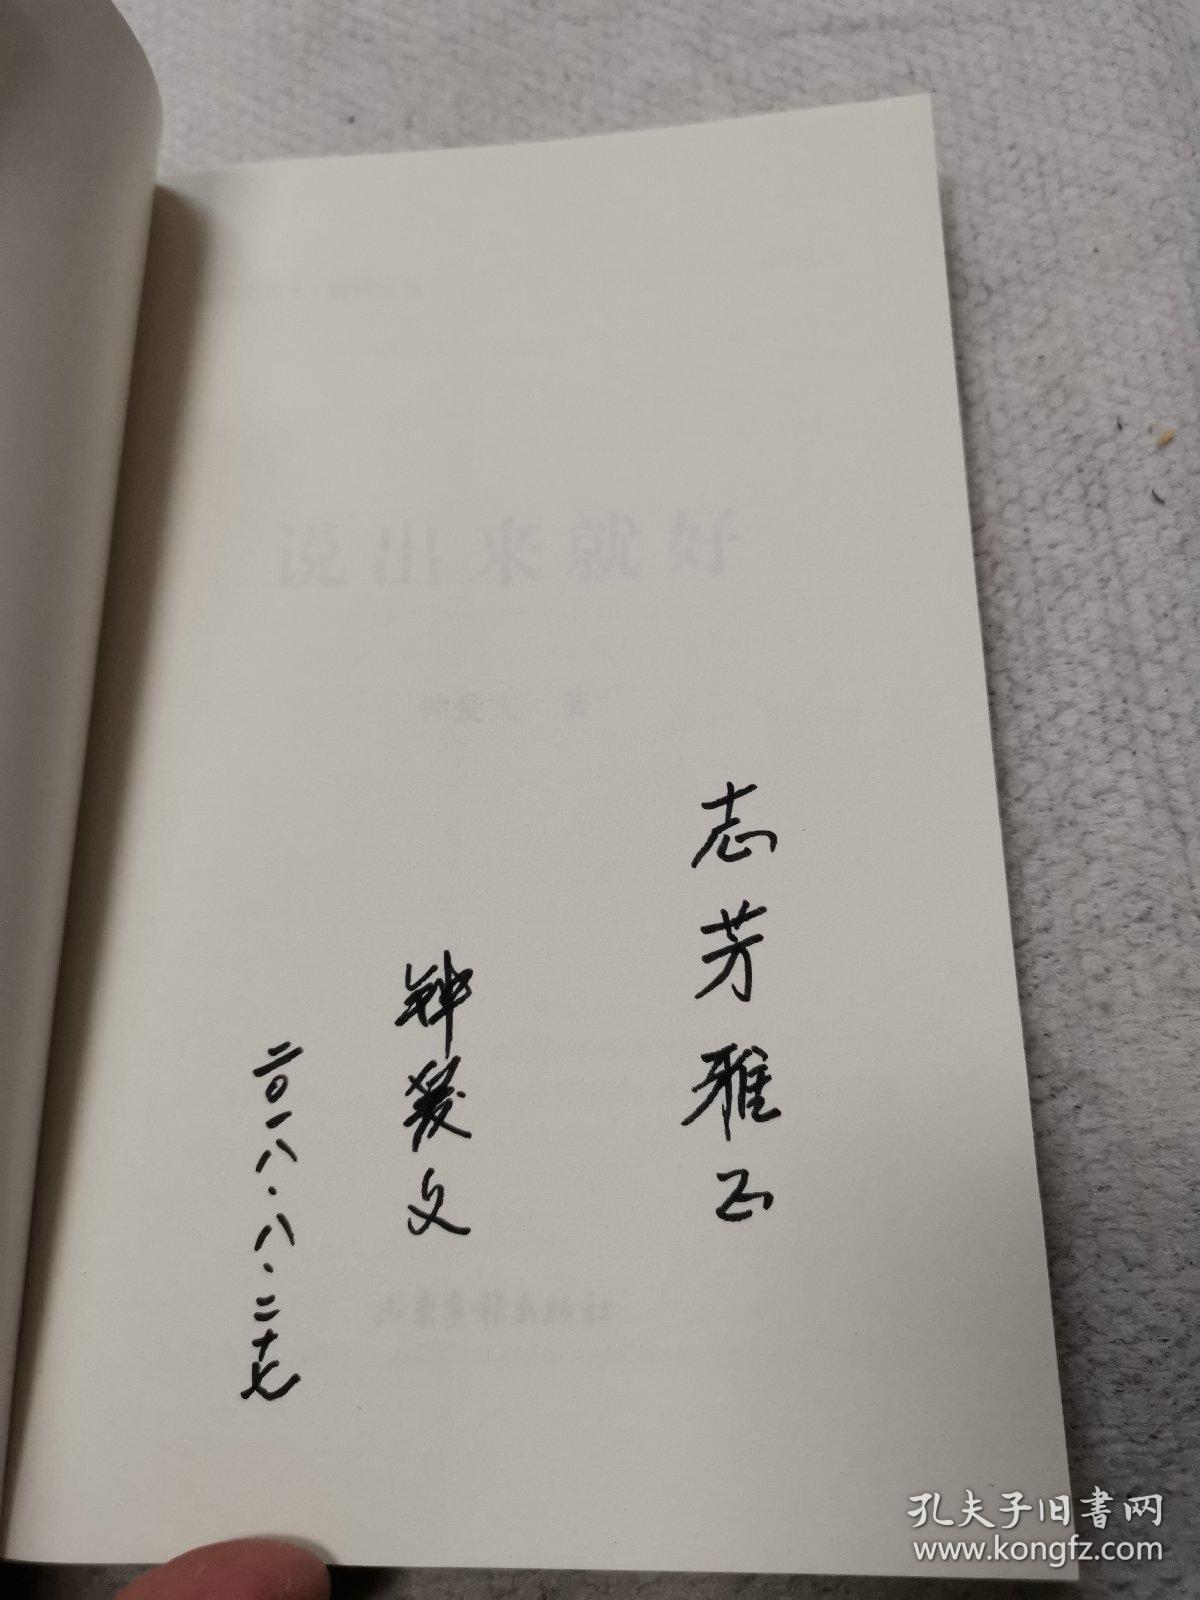 说出来就好
钟爱文 著
志芳雅正
钟爱文
二〇一八.八.二十七
孔夫子旧书网
www.kongfz.com